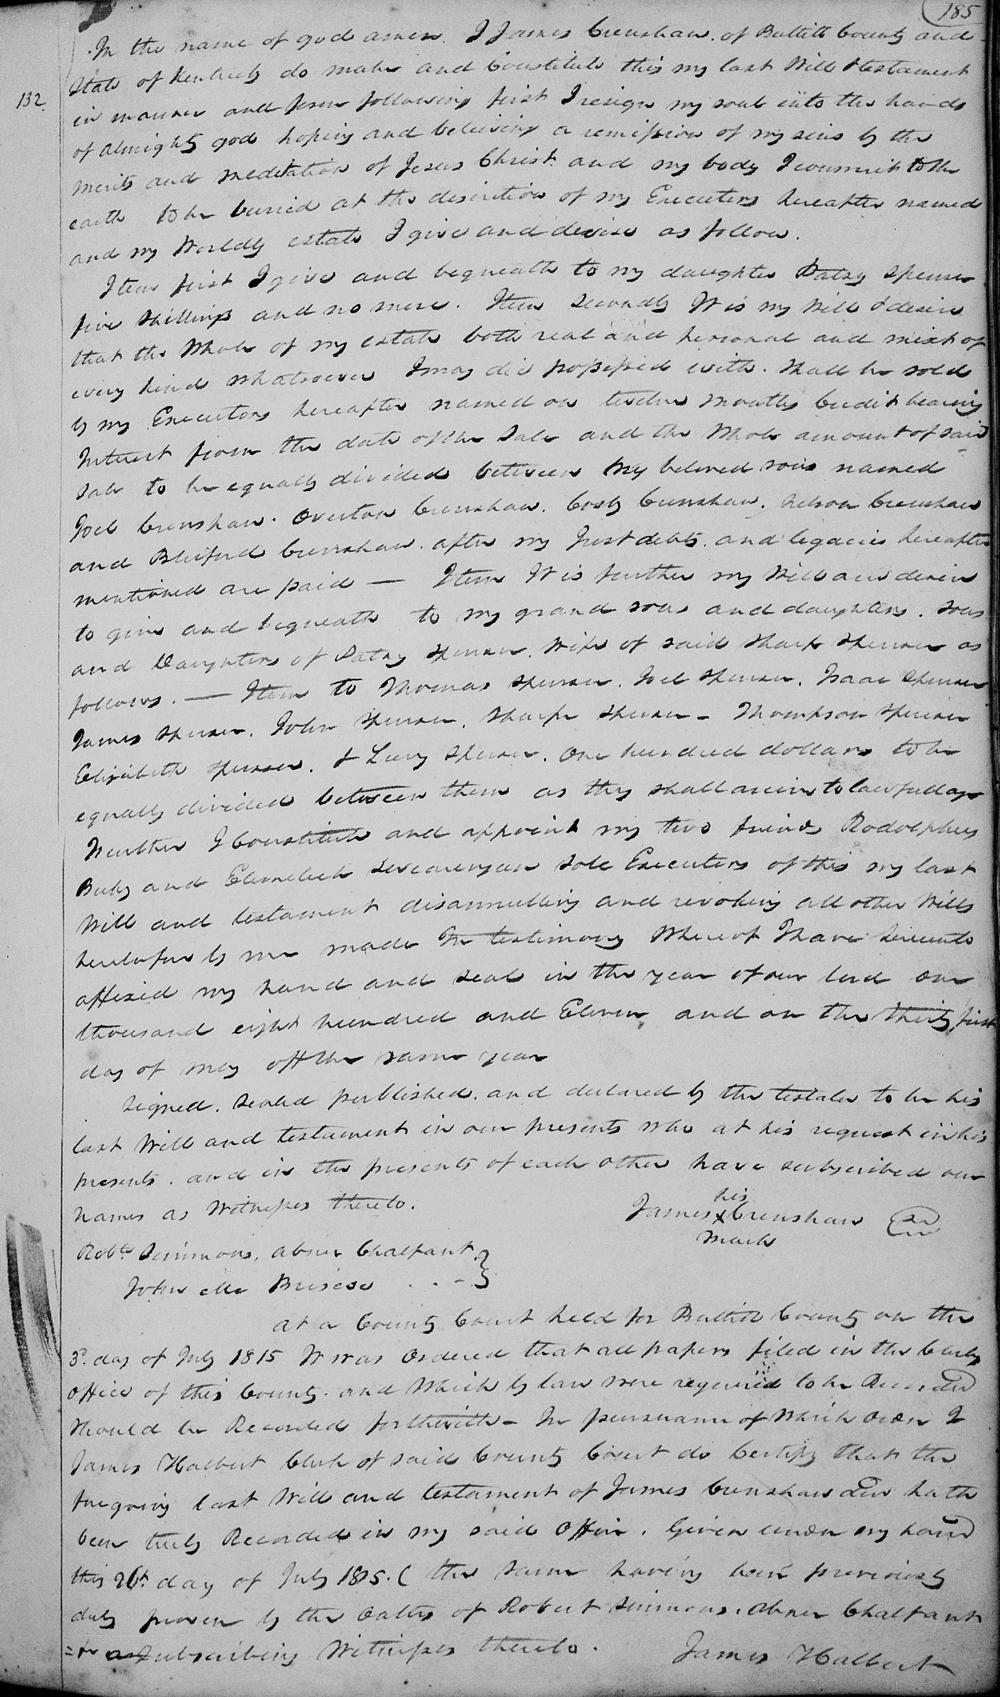 185
In the name of god amen. I James Crenshaw. of Bullitt County and
State of Kentucky do make and Constitute this my last Will & testament
132
in manner and form following first I resign my soul into the hands
of almighty god hoping and believing a remission of my sins by the
merits and meditation of Jesus Christ and my body I commit to the
earth to be buried at the discretion of my Executors hereafter named
and my Worldly estate I give and devise as follow.
Item first I give and bequeath to my daughter Patsy Spencer
five Shillings and no more. Item Secondly It is my Will & desire
that the Whole of my estate both real and personal and mixt of
every kind whatsoever I may die possessed with. Shall be sold
by my Executors hereafter named on twelve Months Credit bearing
Interest from the date of the Sale and the Whole amount of said
Sale to be equally divided between my beloved sons named
Joel Crenshaw. Overton Crenshaw. Cosby Crenshaw. Nelson Crenshaw
and Bluford Crenshaw. after my Just debts. and legacies hereafter
mentioned are paid — Item It is further my Will and desire
to give and bequeath to my grand sons and daughters. Sons
and Daughters of Patsy Spencer. Wife of said Sharp Spencer as
follows. — Item to Thomas Spencer. Joel Spencer. Isaac Spencer
James Spencer. John Spencer. Sharpe Spencer - Thompson Spencer
Elizabeth Spencer. & Lucy Spencer. One hundred dollars to be
equally divided between them as they shall arive to lawfull age
I Constitute and appoint my two friends Rodolphus
and Elimelech sole Executors of this my last
Will and testament disannulling and revoking all other Wills
heretofore by me made In testimony Whereof I have hereunto
affixed my hand and seal in the year of our lord one
thousand eight hundred and Eleven and on the thirty first
day of may off the same year
Signed. Sealed published. and declared by the testator to be his
last Will and testament in our presents who at his request in his
presents. and in the presents of each other have subscribed our
names as Witnesses thereto.
his
James X Crenshaw
mark
Robt. Simmons. Abner Chalfant }
John Briscoe
At a County Court held for Bullitt County on the
3d. day of July 1815 It was Ordered that all papers filed in the Clerks
office of this County. and Which by law were required to be Recorded
Should be Recorded forthwith - In pursuance of Which Order I
James Halbert Clerk of said County Court do Certify that the
foregoing last Will and testament of James Crenshaw hath
been truly Recorded in my said Office. Given under my hand
this 26th day of July 1815. ( the same having been previously
duly proven by the Oaths of Robert Simmons. Abner Chalfant
Subscribing Witnesses thereto.
James Halbert